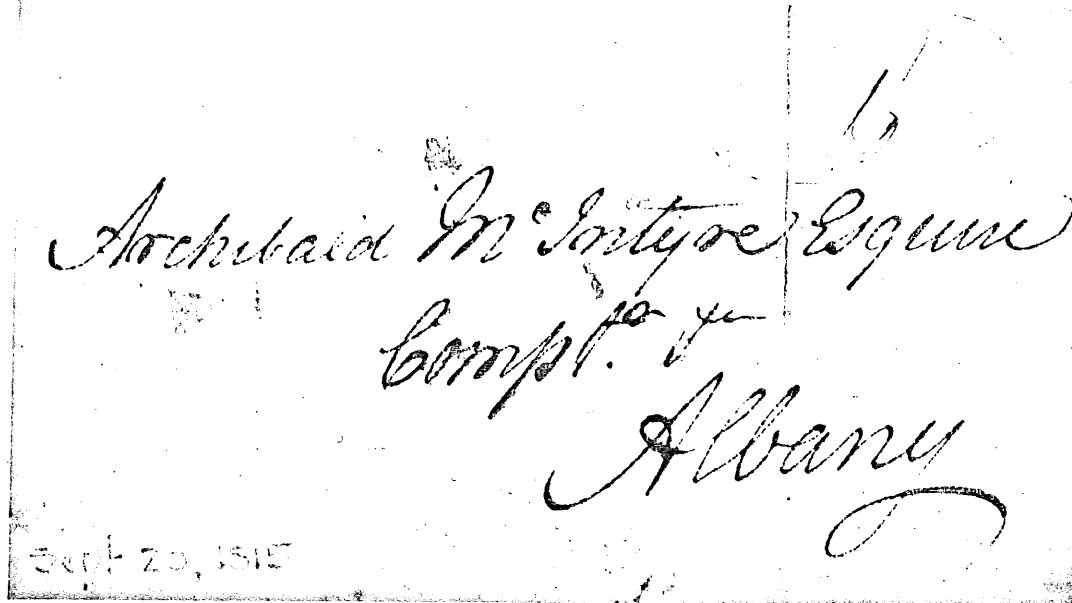 Archibald McIntyre Esquire
Compt.
Albany
Sept 20, 1815